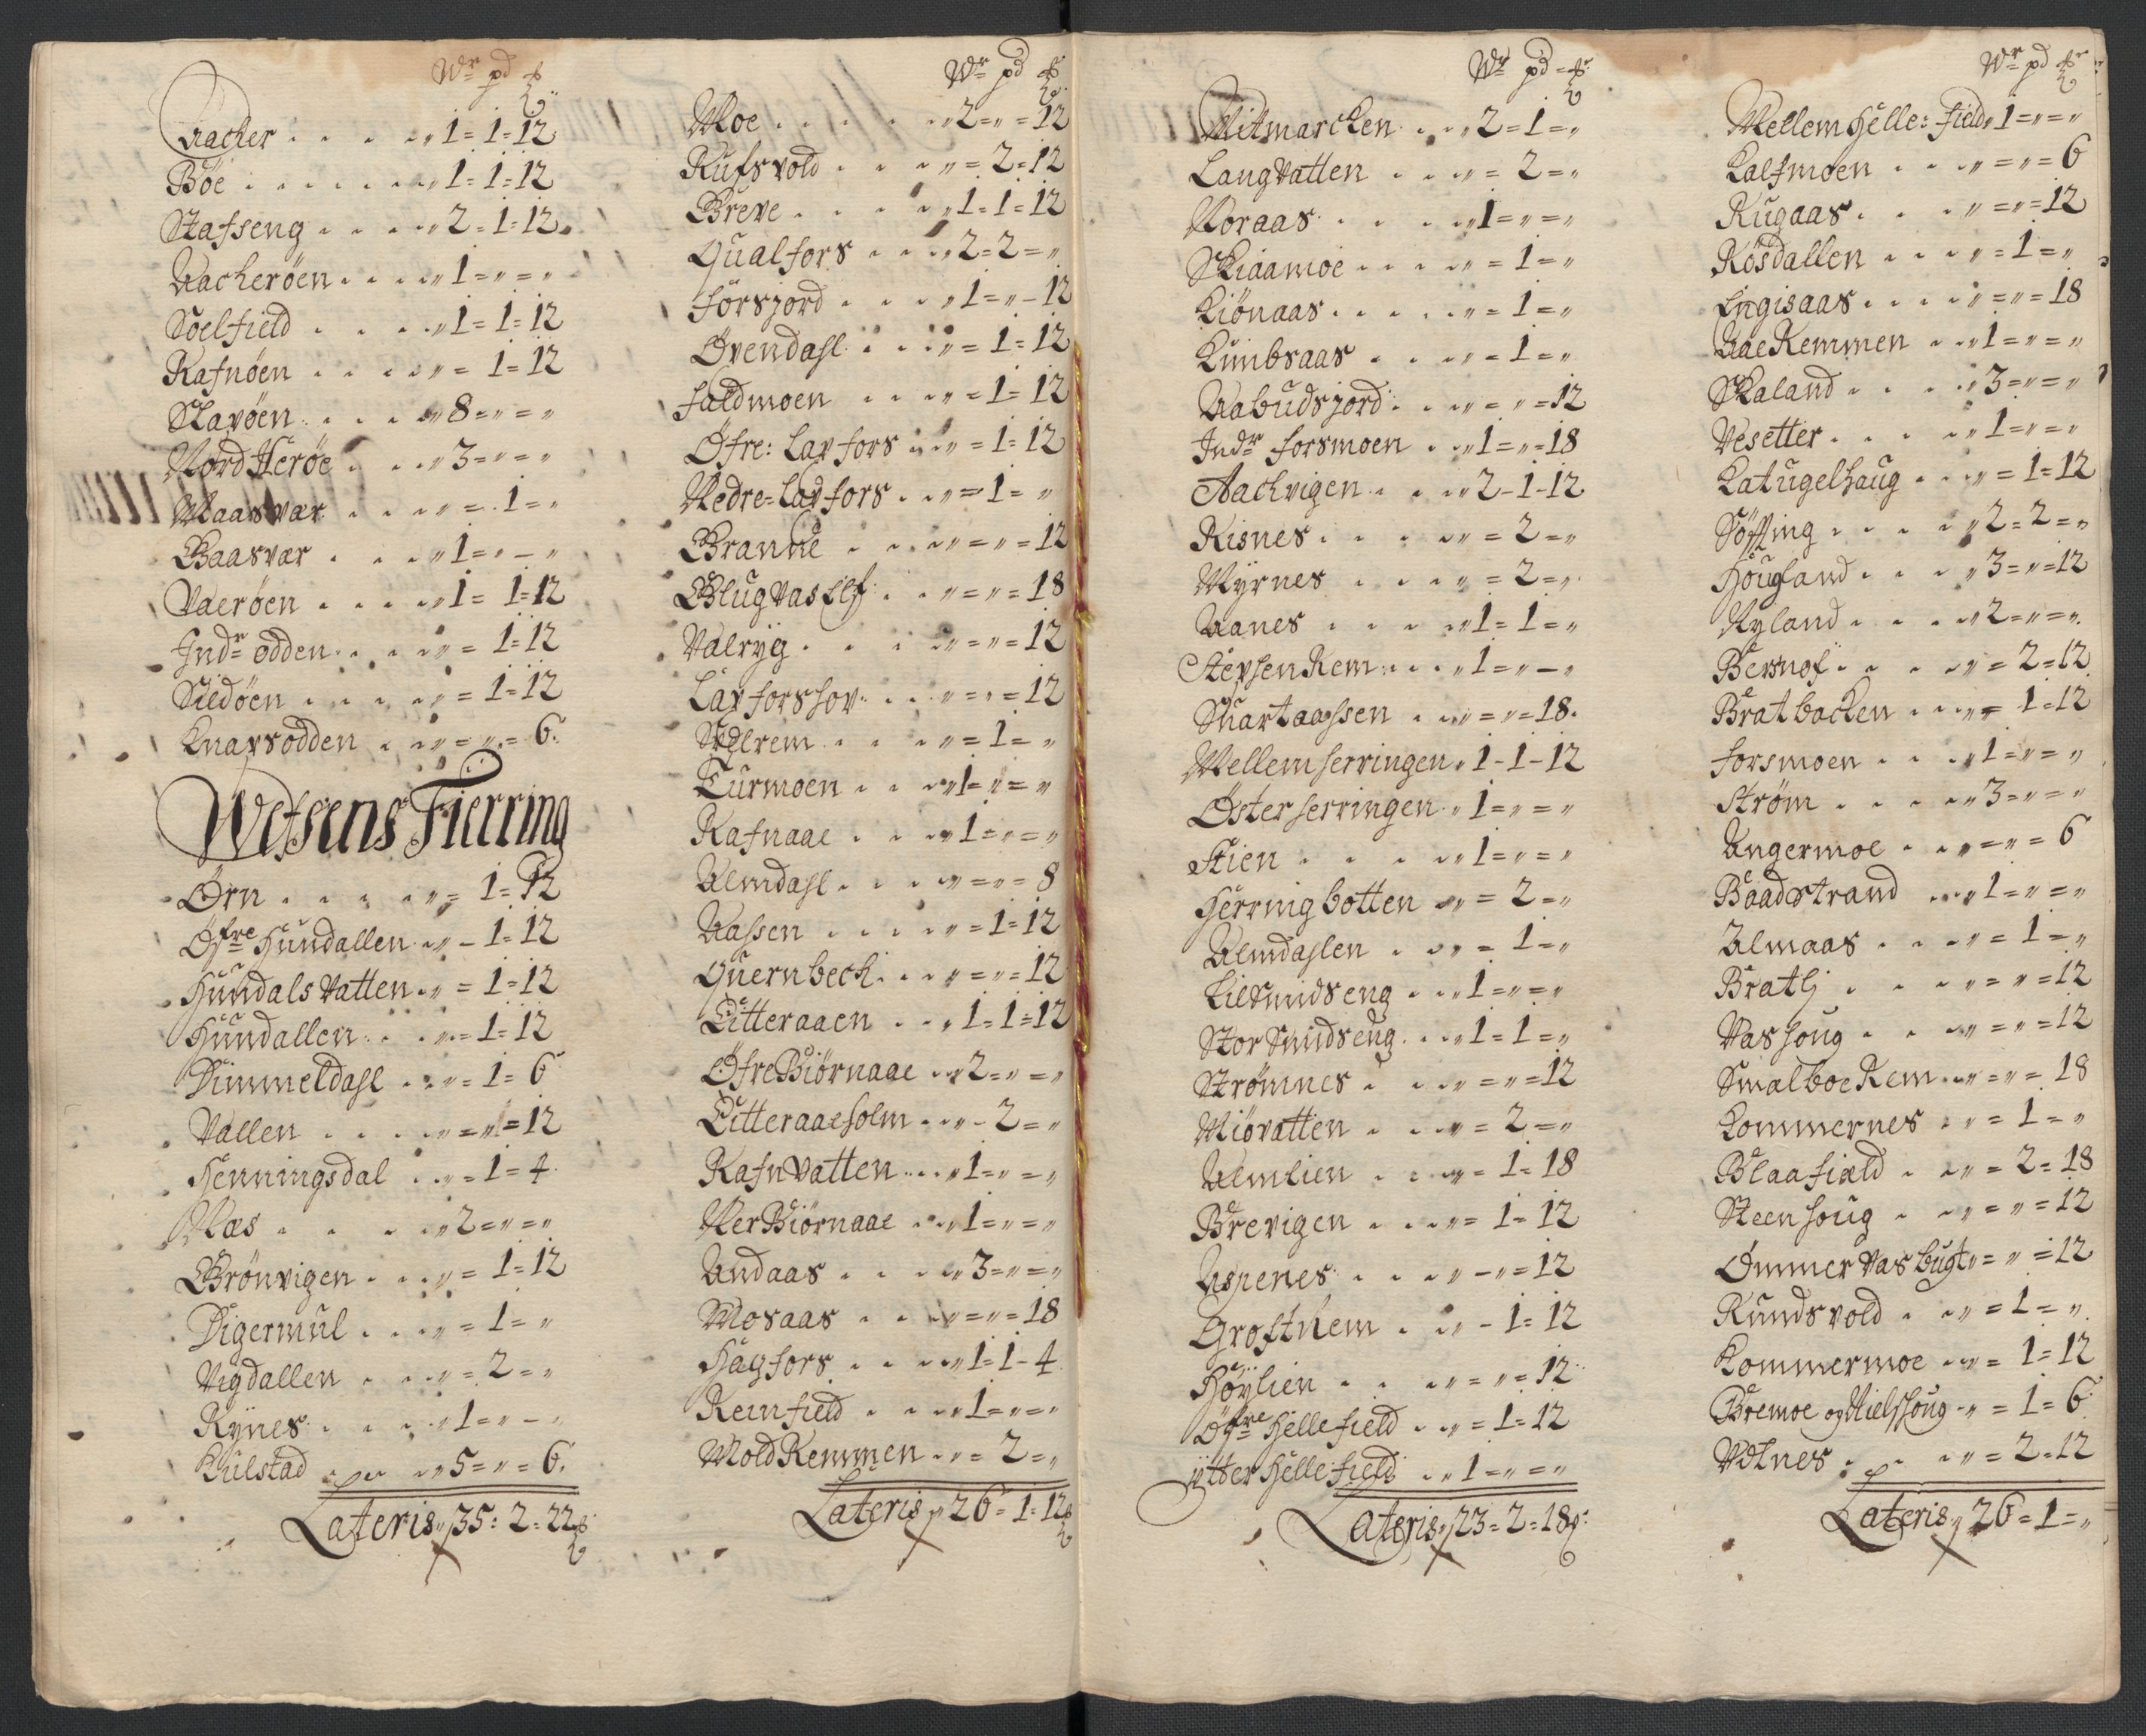 Wr pd
Aacher . . . „ 1 = 1 = 12
Böe . . . „ 1 = 1 = 12
Stafseng . . . „ 2 = 1 = 12
Aacheröen . . . „ 1 = „ = „
Soelfield . . . „ 1 = 1 = 12
Rafnöen . . . „ = 1 = 12
Slavöen . . . „ 8 = „ = „
Nord Heröe . . . „ 3 = „ = „
Maasvær . . . „ = 1 = „
Baasvær . . . „ 1 = „ = „
Vaeröen . . . „ 1 = 1 = 12
Indr odden . . . „ = 1 = 12
Sildöen . . . „ = 1 = 12
Knavsodden . . . „ = „ = 6
Wefsens Fierring
Örn . . . „ = 1 = 12
Öfre Hundallen . . „ = 1 = 12
Hundals Vatten . . „ = 1 = 12
Hundallen . . . „ = 1 = 12
Dimmeldahl . . . „ = 1 = 6
Vallen . . . „ = „ = 12
Henningsdal . . . „ = 1 = 4
Næs . . . „ 2 = „ = „
Brönvigen . . . „ = 1 = 12
Digermul . . . „ = 1 = „
Vigdallen . . . „ = 2 = „
Rynes . . . „ 1 = „ = „
Kulstad . . . „ 5 = „ = 6
Lateris „ 35 = 2 = 22
Wr pd
Moe . . . „ 2 = „ = 12
Rufsvold . . . „ = 2 = 12
Greve . . . „ 1 = 1 = 12
Qualfors . . . „ 2 = 2 = „
Forsjord . . . „ 1 = „ = 12
Övendahl . . . „ = 1 = 12
Faldmoen . . . „ = 1 = 12
Öfre: Laxfors . . „ = 1 = 12
Nedre = Laxfors . . „ = 1 = „
Brande . . . „ = „ = 12
Blugvas Elf . . „ = „ = 18
Valryg . . . „ = „ = 12
Laxforshov . . . „ = „ = 12
Sædlrem . . . „ = 1 = „
Turmoen . . . „ 1 = „ = „
Rafnaae . . . „ 1 = „ = „
Almdahl . . . „ = „ = 8
Aassen . . . „ = 1 = 12
Quernbech . . . „ = „ = 12
Litteraaen . . . „ 1 = 1 = 12
Öfre Biörnaae . . „ 2 = „ = „
Litteraaeholm . . . „ = 2 = „
Rafn Vatten . . . „ 1 = „ = „
Ner Biörnaae . . . „ 1 = „ = „
Andaas . . . „ 3 = „ = „
Mosaas . . . „ = „ = 18
Hagfors . . . „ 1 = 1 = 4
Reinfield . . . „ 1 = „ = „
Mold Remmen . . . „ = 2 = „
Lateris „ 26 = 1 = 12
Wr pd
Mitmarcken . . . „ 2 = 1 = „
Langvatten . . . „ = 2 = „
Noraas . . . „ 1 = „ = „
Skiaamoe . . . „ = 1 = „
Kiönaas . . . „ = 1 = „
Kumbsaas . . . „ = 1 = „
Aabudsjord . . . „ = „ = 12
Indr forsmoen . . „ 1 = „ = 18
Aachvigen . . . „ 2 = 1 = 12
Risnes . . . „ = 2 = „
Myrnes . . . „ = 2 = „
Aanes . . . „ 1 = 1 = „
Stephen Rem . . . „ 1 = „ = „
Suartaassen . . . „ = „ = 18
Mellem herringen „ 1 = 1 = 12
Österherringen . „ 1 = „ = „
Stien . . . „ 1 = „ = „
Herringbotten . . „ = 2 = „
Almdahlen . . . „ = 1 = „
Lilsmidseng . . . „ 1 = „ = „
Stor Smidseng . . . „ 1 = 1 = „
Strömnes . . . „ = „ = 12
Miövatten . . . „ = 2 = „
Almlien . . . „ = 1 = 18
Brevigen . . . „ = 1 = 12
Aspenes . . . „ = „ = 12
Groftrem . . . „ = 1 = 12
Höylien . . . „ = „ = 12
Öfre Hellefield . . „ = 1 = 12
ytter Hellefield . . „ 1 = „ = „
Lateris „ 23 = 2 = 18
Wr pd
Mellem Helle: field „ 1 = „ = „
Kalfmoen . . . „ = „ = 6
Rugaas . . . „ = „ = 12
Rösdallen . . . „ = 1 = „
Engisaas . . . „ = „ = 18
Aae Remmen . . . „ 1 = „ = „
Skaland . . . „ 3 = „ = „
Vesetter . . . „ 1 = „ = „
Katugelhaug . . . „ = 1 = 12
Söfting . . . „ 2 = 2 = „
Hougland . . . „ 3 = „ = 12
Ryland . . . „ 2 = „ = „
Bersnof . . . „ = 2 = 12
Bratbacken . . . „ = 1 = 12
Forsmoen . . . „ 1 = „ = „
Strøm . . . „ 3 = „ = „
Angermoe . . . „ = „ = 6
Baadstrand . . . „ 1 = „ = „
Almaas . . . „ = 1 = „
Bratli . . . „ = „ = 12
Vashoug . . . „ = „ = 12
Smalboe Rem . . . „ = „ = 18
Kommernes . . . „ = 1 = „
Blaafiæld . . . „ = 2 = 18
Steenhoug . . . „ = „ = 12
Ømmer Vas bugt „ = „ = 12
Kundsvold . . . „ = 1 = „
Kommermoe . . . „ = 1 = 12
Bremoe og Nielshoug . „ = 1 = 6
Volnes . . . „ = 2 = 12
Lateris „ 26 = 1 = „